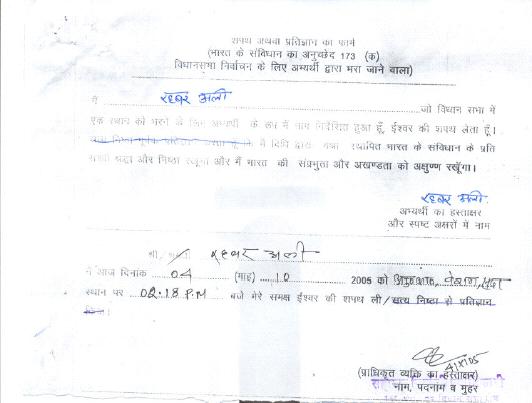 शपथ अथवा प्रतिज्ञान का फार्म
(भारत के संविधान का अनुच्छेद 173 (क)
विधानसभा निर्वाचन के लिए अभ्यर्थी द्वारा भरा जाने वाला)
मैं रहबर अली जो विधान सभा में
एक स्थान को भरने के लिए अभ्यर्थी के रूप में नाम निर्देशित हुआ हूँ, ईश्वर की शपथ लेता हूँ।
कि मैं विधि द्वारा यथा स्थापित भारत के संविधान के प्रति
सच्ची श्रद्धा और निष्ठा रखूंगा और मैं भारत की संप्रभुता और अखण्डता को अक्षुण्ण रखूँगा।
रहबर अली
अभ्यर्थी का हस्ताक्षर
और स्पष्ट अक्षरों में नाम
श्री/ रहबर अली
ने आज दिनांक 04 (माह) 10 2005 को
स्थान पर 02.18 P.M बजे मेरे समक्ष ईश्वर की शपथ ली/सत्य निष्ठा से प्रतिज्ञान
4/X/05
(प्राधिकृत व्यक्ति का हस्ताक्षर)
नाम, पदनाम व मुहर